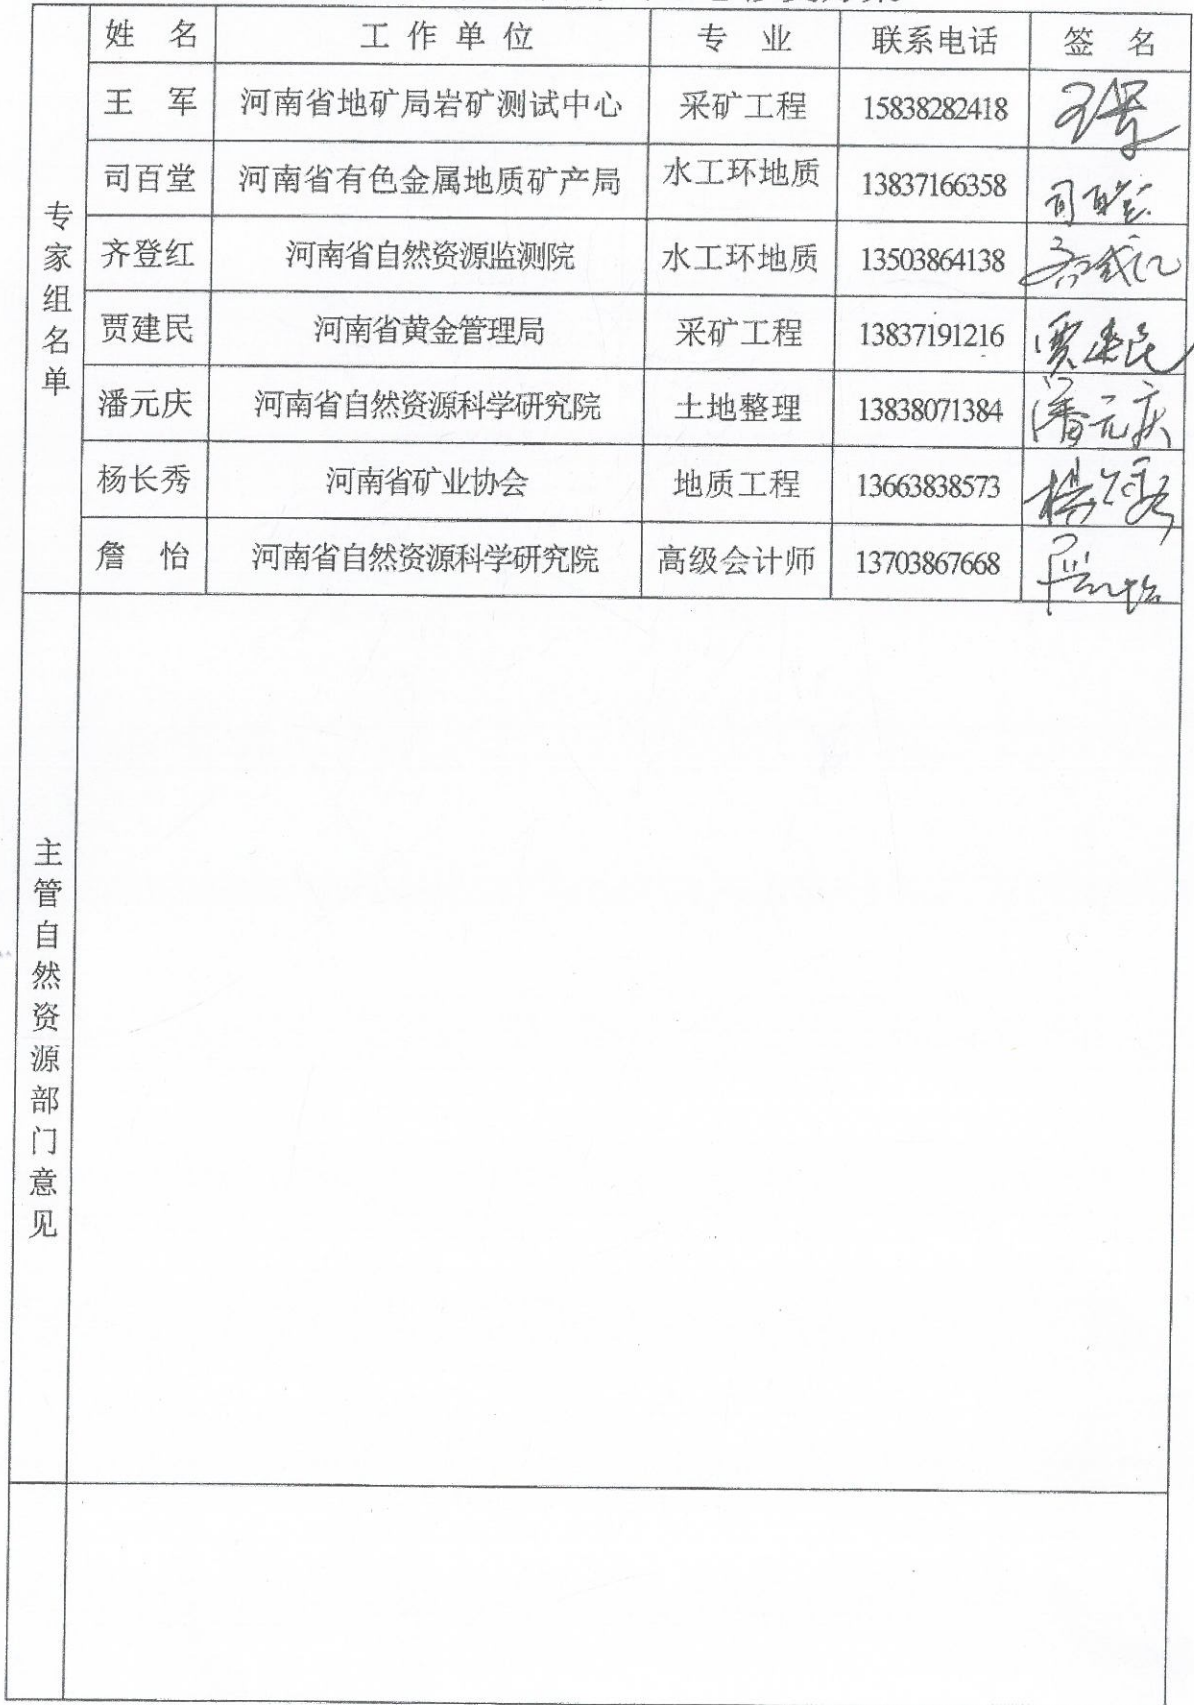 姓 名 工作单位 专 业 联系电话 签 名
王 军 河南省地矿局岩矿测试中心 采矿工程 15838282418 王军
司百堂 河南省有色金属地质矿产局 水工环地质 13837166358 司百堂
齐登红 河南省自然资源监测院 水工环地质 13503864138 齐登红
贾建民 河南省黄金管理局 采矿工程 13837191216 贾建民
潘元庆 河南省自然资源科学研究院 土地整理 13838071384 潘元庆
杨长秀 河南省矿业协会 地质工程 13663838573 楊长秀
詹 怡 河南省自然资源科学研究院 高级会计师 13703867668 詹怡
专家组名单
主管自然资源部门意见